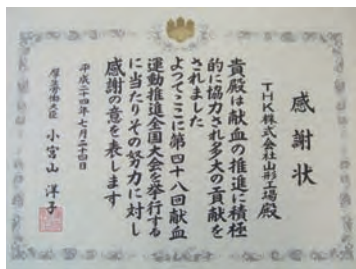 感謝状
THK株式会社山形工場殿
貴殿は献血の推進に積極
的に協力され多大の貢献を
されました
よってここに第四十八回献血
運動推進全国大会を挙行する
に当たりその努力に対し
感謝の意を表します
平成二十四年七月二十四日
厚生労働大臣 小宮山洋子